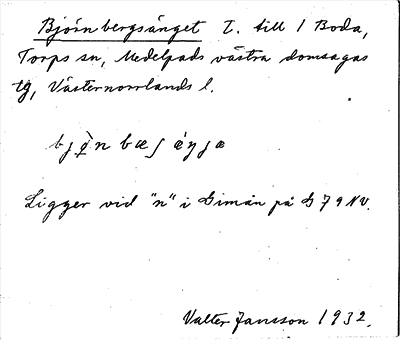 Björnbergsänget T. till 1 Boda,
Torps sn, Medelpads västra domsagas
tg, Västernorrlands l.
Ligger vid "n" i Gimån på G 79 NV.
Valter Jansson 1932.